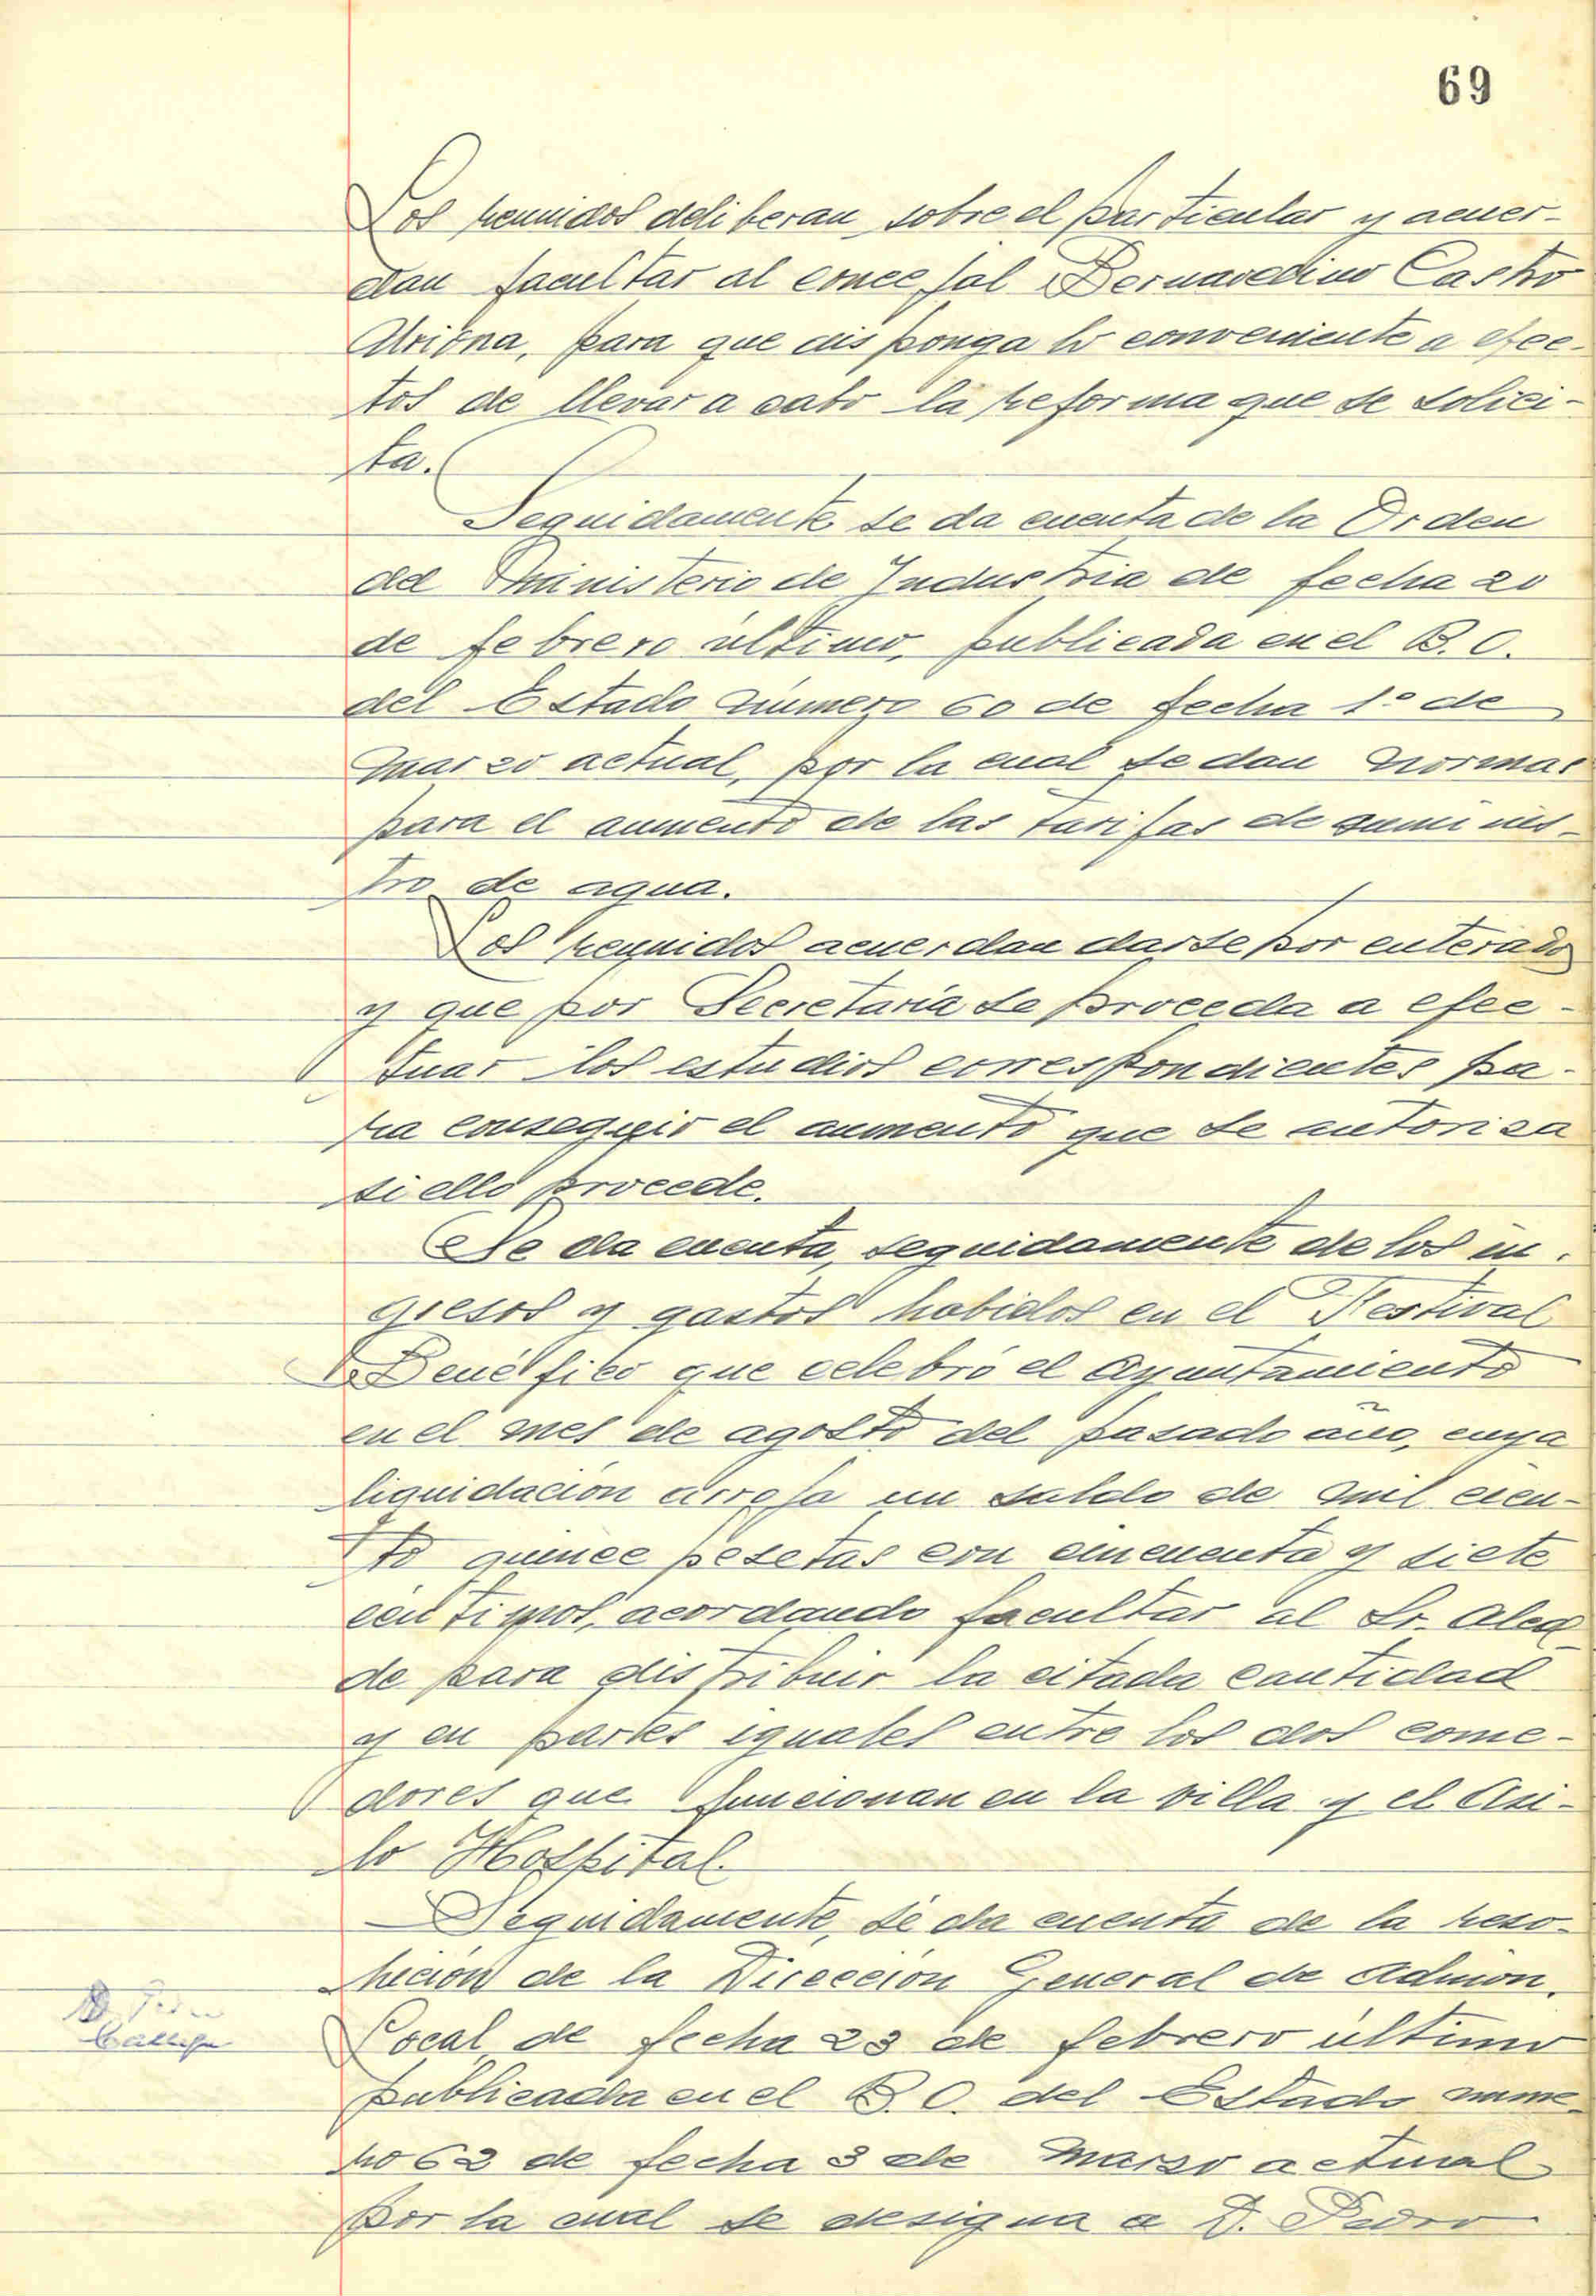 69
Los reunidos deliberan sobre el particular y acuer-
dan facultar al concejal Bernavedino Castro
para que disponga lo conveniente a efec-
tos de llevar a cabo la reforma que se solici-
ta.
Seguidamente se da cuenta de la Orden
del Ministerio de Industria de fecha 20
de febrero último, publicada en el B.O.
del Estado número 60 de fecha 1º de
marzo actual, por la cual se dan normas
para el aumento de las tarifas de suminis-
tro de agua.
Los reunidos acuerdan darse por enterado
y que por Secretaría se proceda a efec-
tuar los estudios correspondientes pa-
ra conseguir el aumento que se autoriza
si ello procede.
Se da cuenta, seguidamente de los in-
gresos y gastos habidos en el Festival
Benéfico que celebró el Ayuntamiento
en el mes de agosto del pasado año, cuya
liquidación arroja un saldo de mil cien-
to quince pesetas con cincuenta y siete
céntimos, acordando facultar al Sr. Alcal-
de para distribuir la citada cantidad
y en partes iguales entre los dos come-
dores que funcionan en la villa y el Asi-
lo Hospital.
Seguidamente, se da cuenta de la reso-
lución de la Dirección General de Admón.
D. Pedro
Local de fecha 23 de febrero último
publicada en el B.O. del Estado núme-
ro 62 de fecha 3 de marzo actual
por la cual se designa a D. Pedro